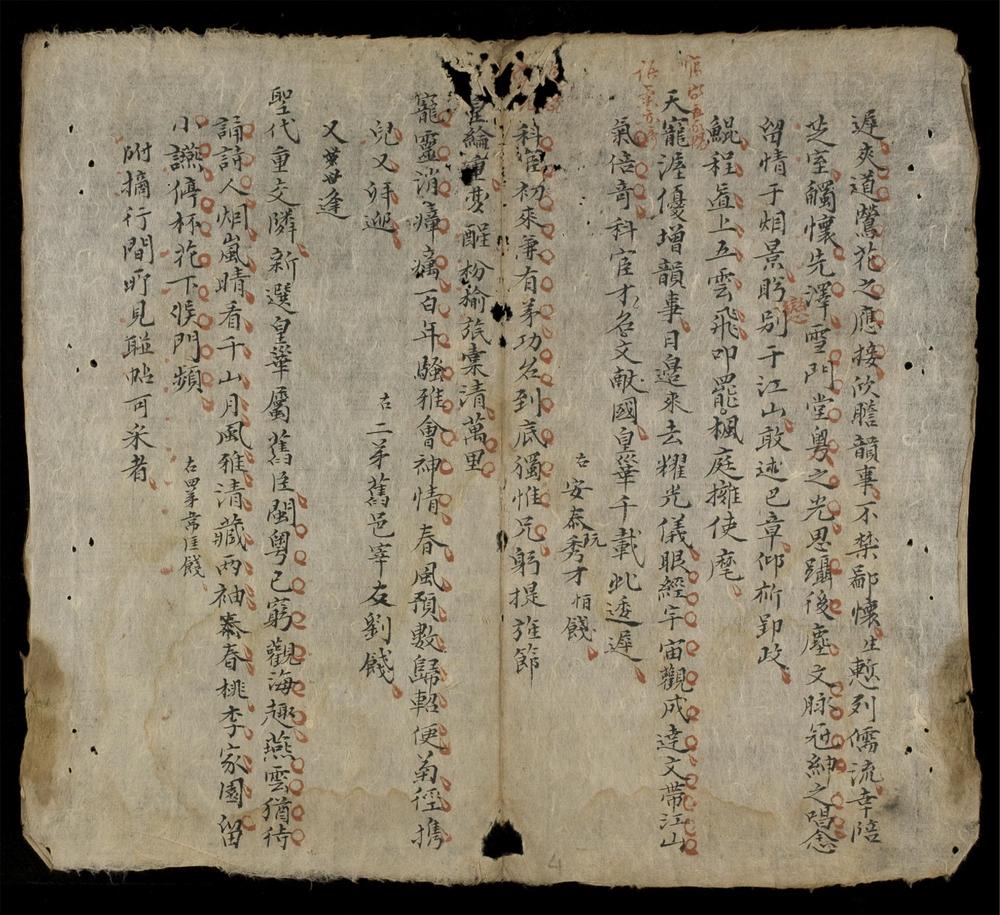 遲爽道鶯花之應接欣瞻韻事不禁鄙懷生慙列儒流幸陪
芝室觸懷先澤雪門堂粵之光思躡後塵文脉冠紳之唱念
留情于烟景盻別于江山敢述巴章仰祈郢政
戀
鯤程直上五雲飛叩罷楓庭擁使麾
天寵渥優增韻事日邉來去耀光儀眼經宇宙觀成達文帶江山
氣倍奇科宦才名文献國皇華千載此逶遲
右安泰阮秀才怕餞
科宦初來兼有茅功名到底獨惟兄躬提旌節
皇綸重夢醒枌榆旅橐清萬里
寵靈消瘴癘百年騷雅會神情春風預數歸軺便菊徑携
兒又好迎
右二茅舊邑宰友劉餞
又葉丗逢
聖代重交隣新選皇華屬舊臣閩粵已窮觀海趣燕雲猶待
誦詩人烟嵐晴看千山月風雅清藏両袖春桃李家園留
小讌停杯花下候門頻
右四茅常侄餞
附摘行間所見聯帖可采者